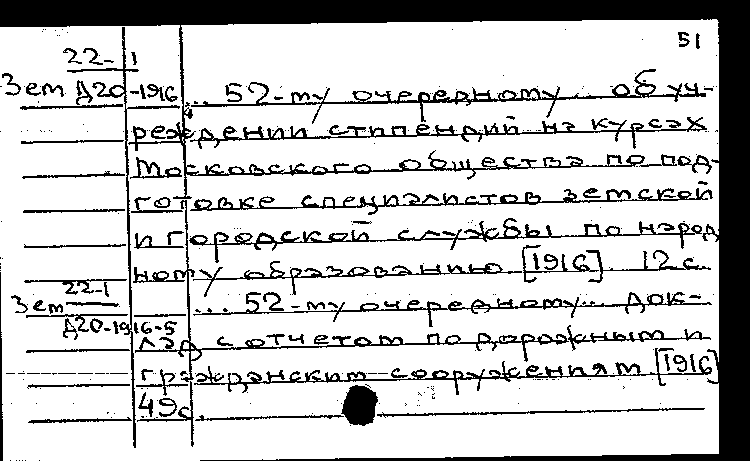 51
22-1
Зем Д20-1916 ... 52-му очередному ... об уч-
реждении стипендий на курсах
Московского общества по под-
готовке специалистов земской
и городской службы по народ
ному образованию [1916]. 12 с.
22-1
Зем ... 52-му очередному ... док-
Д20-1916-5
лад с отчетом по дорожным и
гражданским сооружениям [1916]
49 с.